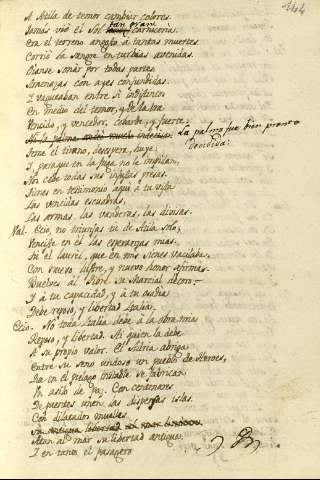 A Atila de temor cambiar colores.
Jamás vió el Sol tan gran carniceria.
Era el terreno angosto à tantas muertes
Corrió la sangre en turbias avenidas.
Oíanse sonar por todas partes
Amenazas con ayes confundidas.
I vagueaban entre si indistintos
En medio del temor, y de la ira
Vencido, y vencedor, cobarde, y fuerte.
No la palma estuvo mucho indecisa. La palma fue bien pronto
decidida:
Teme el tirano, desespera, huye:
I, porque en la fuga no le impidan,
No cede todas sus injustas presas.
Tienes en testimonio aqui à tu vista
Las vencidas escuadras,
Las armas, las vanderas, las divisas.
Val. Ecio, no triunfas tu de Atila solo;
Venciste en èl las esperanzas mias.
Si el laurel, que en mis sienes vacilaba,
Con nuevo lustre, y nuevo honor afirmas.
Vuelves al Tibre su Marcial decoro,
I à tu capacidad, y à tu osadia
Debe reposo, y libertad Italia.
Ecio. No toda Italia debe à la obra mia
Reposo, y libertad. Ai quien la debe
A su propio valor. El Adria abriga
Entre su seno undoso un pueblo de Heroes,
Que en el pielago instable se fabrican
Un asilo de paz. Con centenares
De puentes unen las dispersas islas.
Con dilatados muelles
Su antigua libertad
Atan al mar su libertad antigua,
I en tanto el pasagero